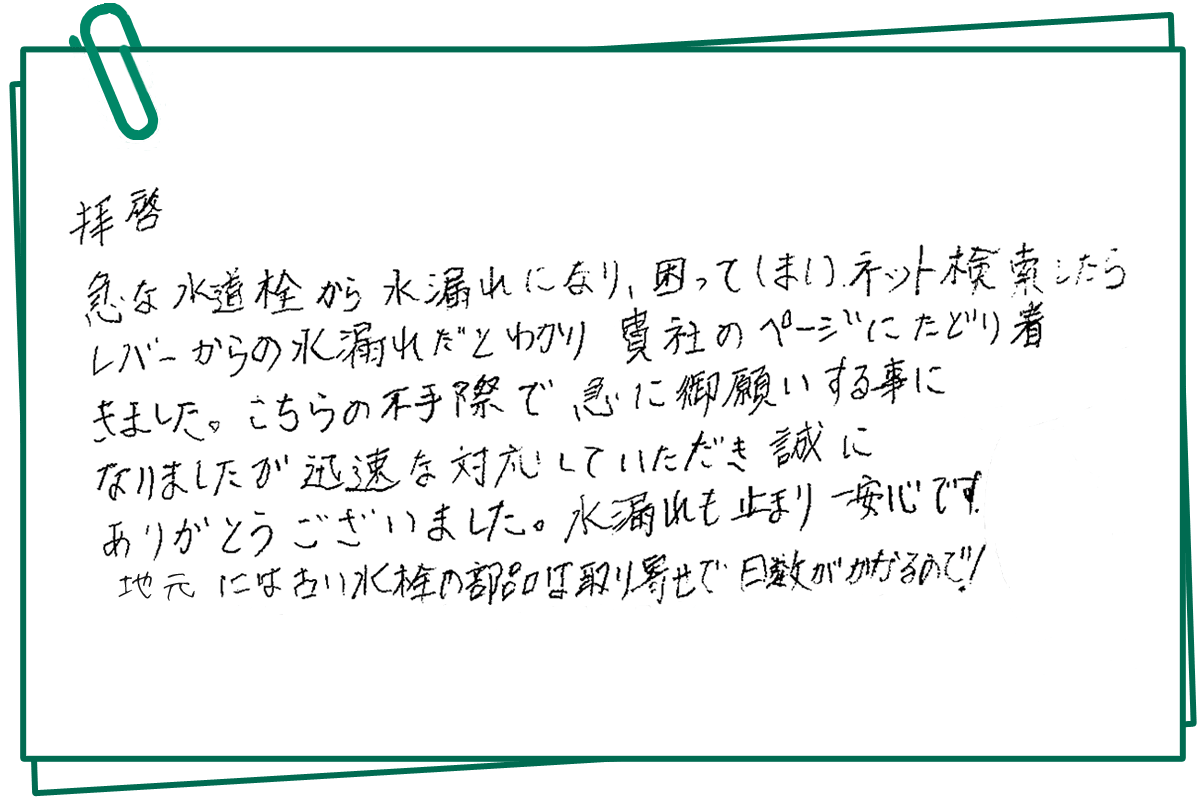 拝啓
急な水道栓から水漏れになり、困ってしまい、ネット検索したら
レバーからの水漏れだとわかり 貴社のページにたどり着
きました。こちらの不手際で急に御願いする事に
なりましたが迅速な対応していただき誠に
ありがとうございました。水漏れも止まり一安心です。
地元には古い水栓の部品は取り寄せで日数がかかるので!